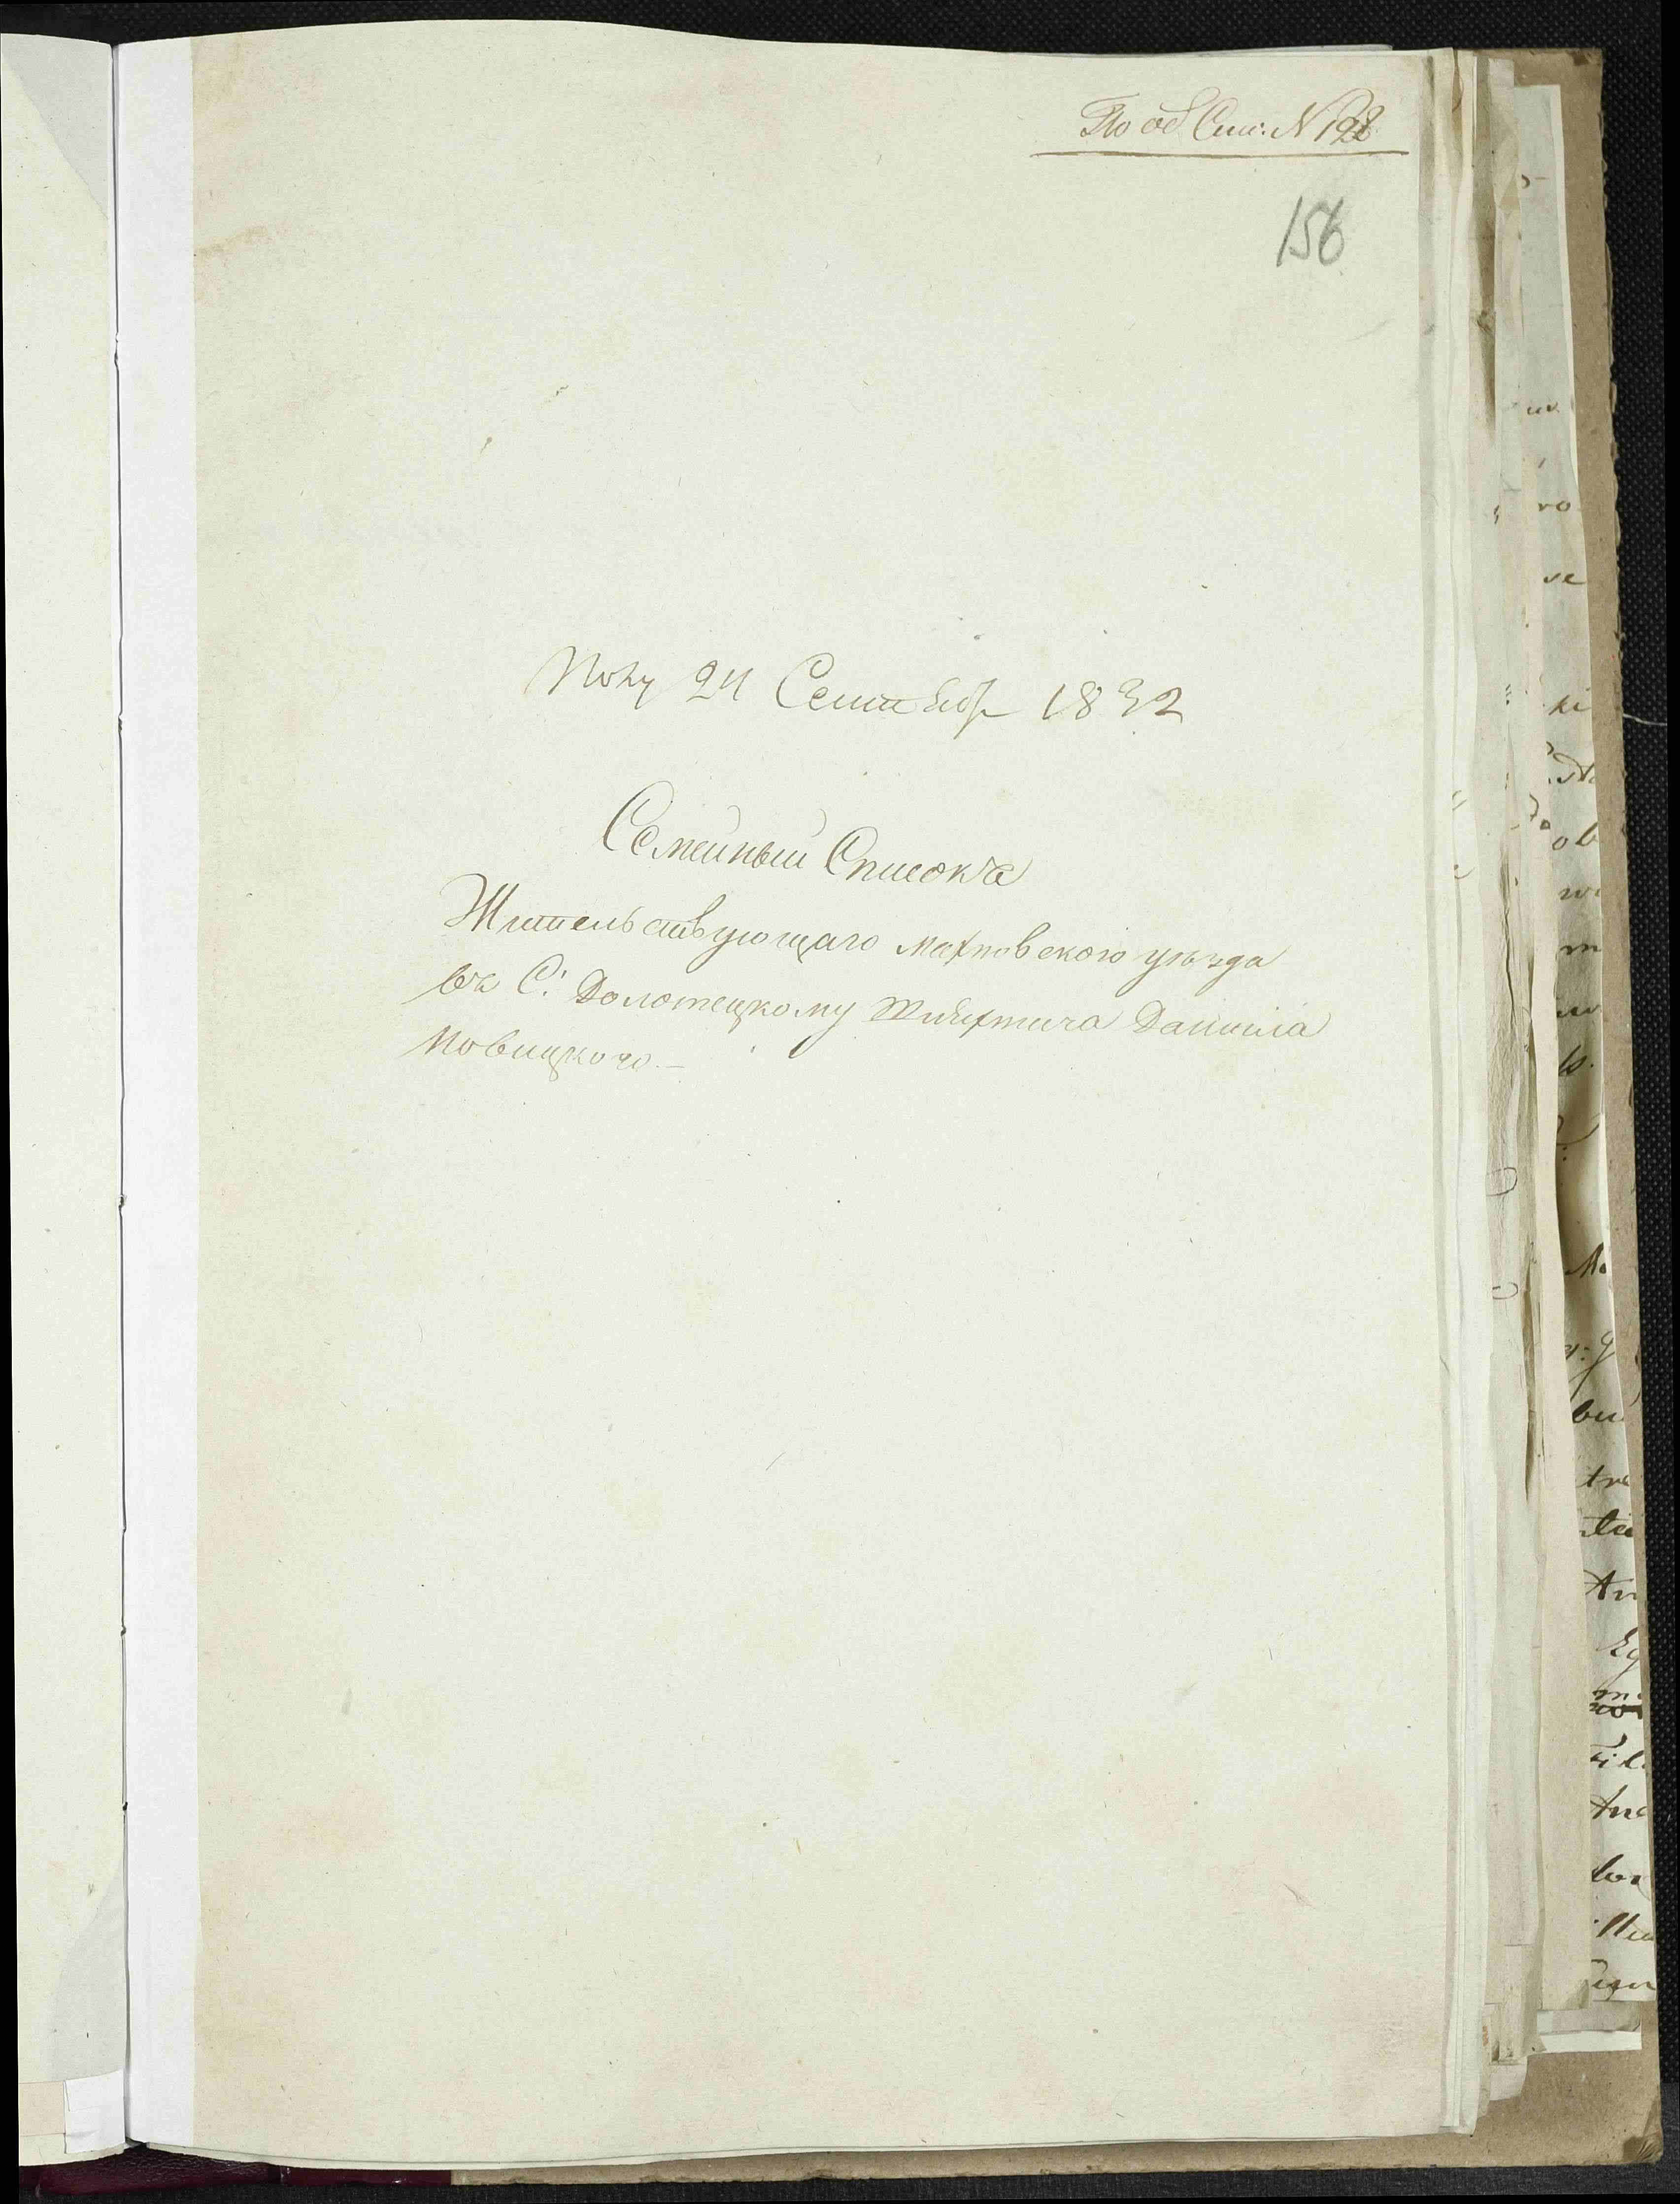 По об. Спи: N 198
156
Полу 24 Сентября 1832
Семейный Списокъ
Жительствующаго Махновского уезда
въ С: Долотецкому Шляхтича Данила
Новицкого.—